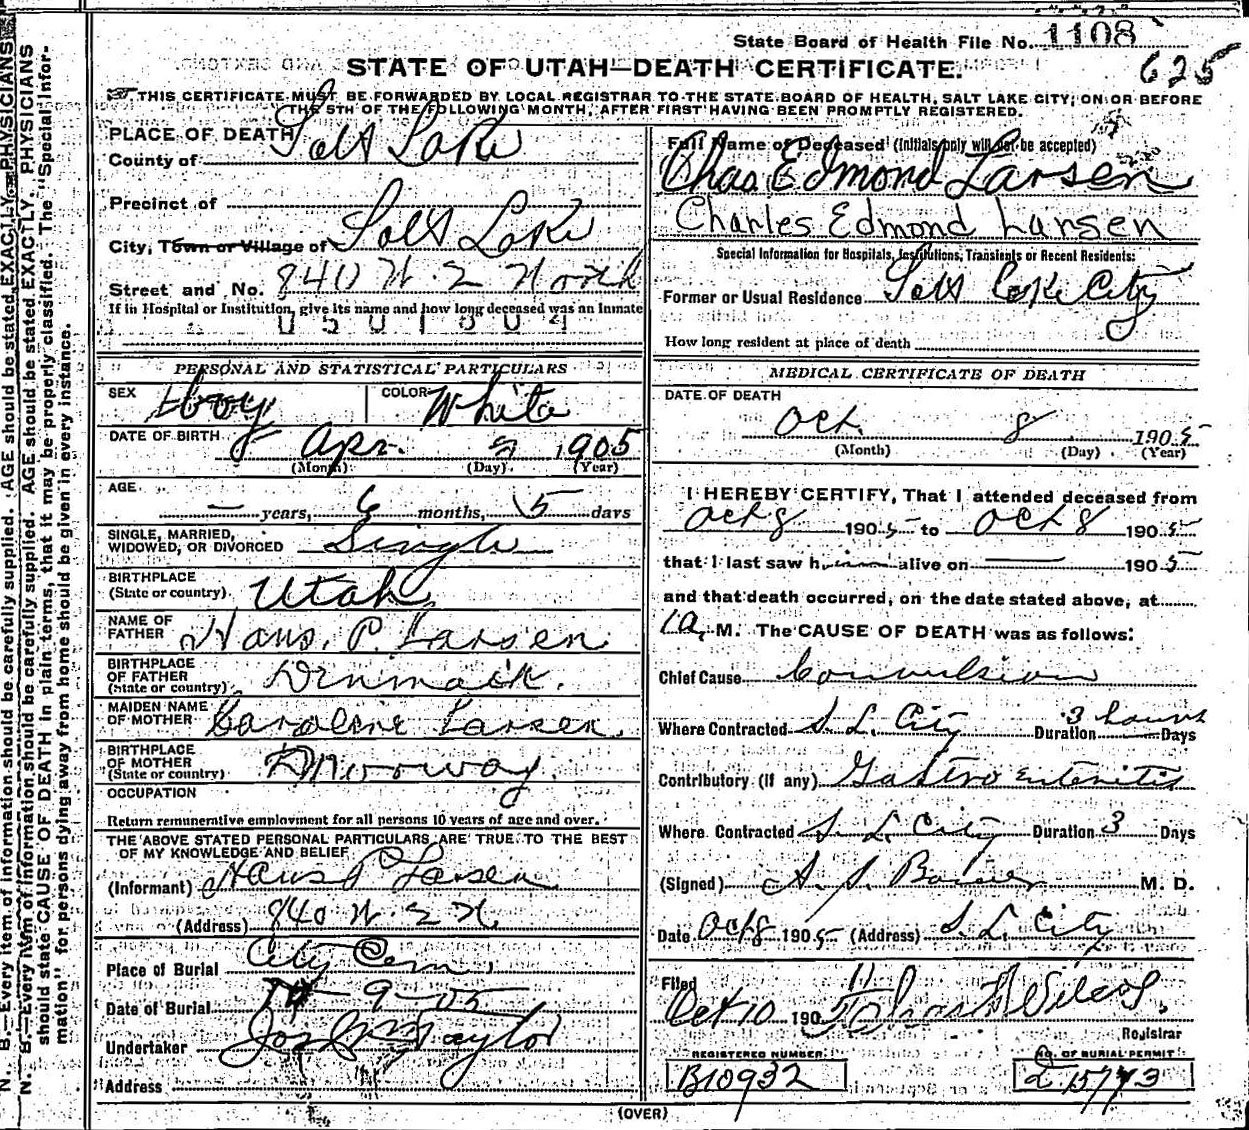 State Board of Health File No. 1108
625
STATE OF UTAH—DEATH CERTIFICATE.
THIS CERTIFICATE MUST BE FORWARDED BY LOCAL REGISTRAR TO THE STATE BOARD OF HEALTH, SALT LAKE CITY, ON OR BEFORE
THE 5TH OF THE FOLLOWING MONTH, AFTER FIRST HAVING BEEN PROMPTLY REGISTERED.
PLACE OF DEATH
County of Salt Lake
Precinct of
City, Town or Village of Salt Lake
Street and No. 840 W. 2 North
If in Hospital or Institution, give its name and how long deceased was an inmate
0501804
PERSONAL AND STATISTICAL PARTICULARS
SEX Boy COLOR White
DATE OF BIRTH Apr. 1905
(Month) (Day) (Year)
AGE
— years, 6 months, 5 days
SINGLE, MARRIED,
WIDOWED, OR DIVORCED Single
BIRTHPLACE
(State or country) Utah
NAME OF
FATHER Hans. P. Larsen
BIRTHPLACE
OF FATHER
(State or country) Denmark.
MAIDEN NAME
OF MOTHER Karoline Larsen.
BIRTHPLACE
OF MOTHER
(State or country) Norway.
OCCUPATION
Return remunerative employment for all persons 10 years of age and over.
THE ABOVE STATED PERSONAL PARTICULARS ARE TRUE TO THE BEST
OF MY KNOWLEDGE AND BELIEF
(Informant) Hans P Larsen
(Address) 840 W. 2 N.
Place of Burial City Cem.
Date of Burial 9-05
Undertaker Jos Wm Taylor
Address
Full Name of Deceased (Initials only will not be accepted)
Chas Edmond Larsen
Charles Edmond Larsen
Special Information for Hospitals, Institutions, Transients or Recent Residents:
Former or Usual Residence Salt Lake City
How long resident at place of death
MEDICAL CERTIFICATE OF DEATH
DATE OF DEATH
Oct. 8 1905
(Month) (Day) (Year)
I HEREBY CERTIFY, That I attended deceased from
Oct 8 1905 to Oct 8 1905
that I last saw him alive on —— 1905
and that death occurred, on the date stated above, at
1 a. M. The CAUSE OF DEATH was as follows:
Chief Cause Convulsion
Where Contracted S. L. City Duration 3 hours Days
Contributory (if any) Gastro enteritis
Where Contracted S. L. City Duration 3 Days
(Signed) M. D.
Date Oct 8 1905 (Address) S. L. City
Filed
Oct 10 1905
Registrar
REGISTERED NUMBER
B10932
NO. OF BURIAL PERMIT
(OVER)
N. B.—Every item of information should be carefully supplied. AGE should be stated EXACTLY. PHYSICIANS
N. B.—Every item of information should be carefully supplied. AGE should be stated EXACTLY. PHYSICIANS
should state CAUSE OF DEATH in plain terms, that it may be properly classified. The "Special Infor-
mation" for persons dying away from home should be given in every instance.